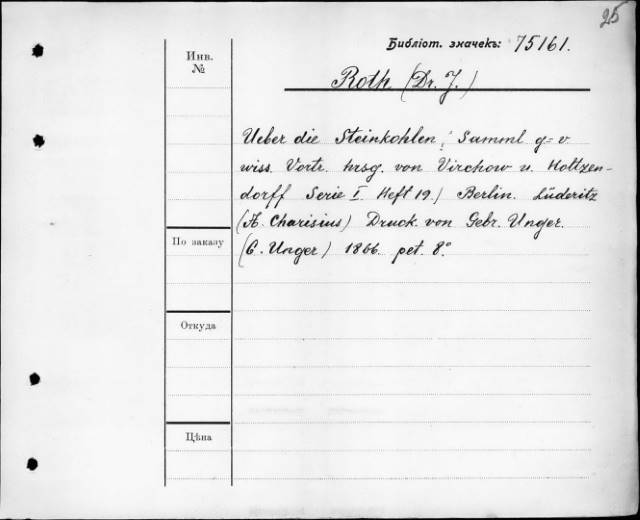 25
Библіот. значекъ: 75161.
Инв. №
Roth (Dr. J.)
Ueber die Steinkohlen; Samml g= v.
wiss. Vortr. hrsg. von Virchow u. Holtzen-
dorff Serie I Heft 19.) Berlin. Lüderitz
(A. Charisius) Druck von Gebr. Unger.
(C. Unger) 1866. pet. 8°
По заказу
Откуда
Цѣна